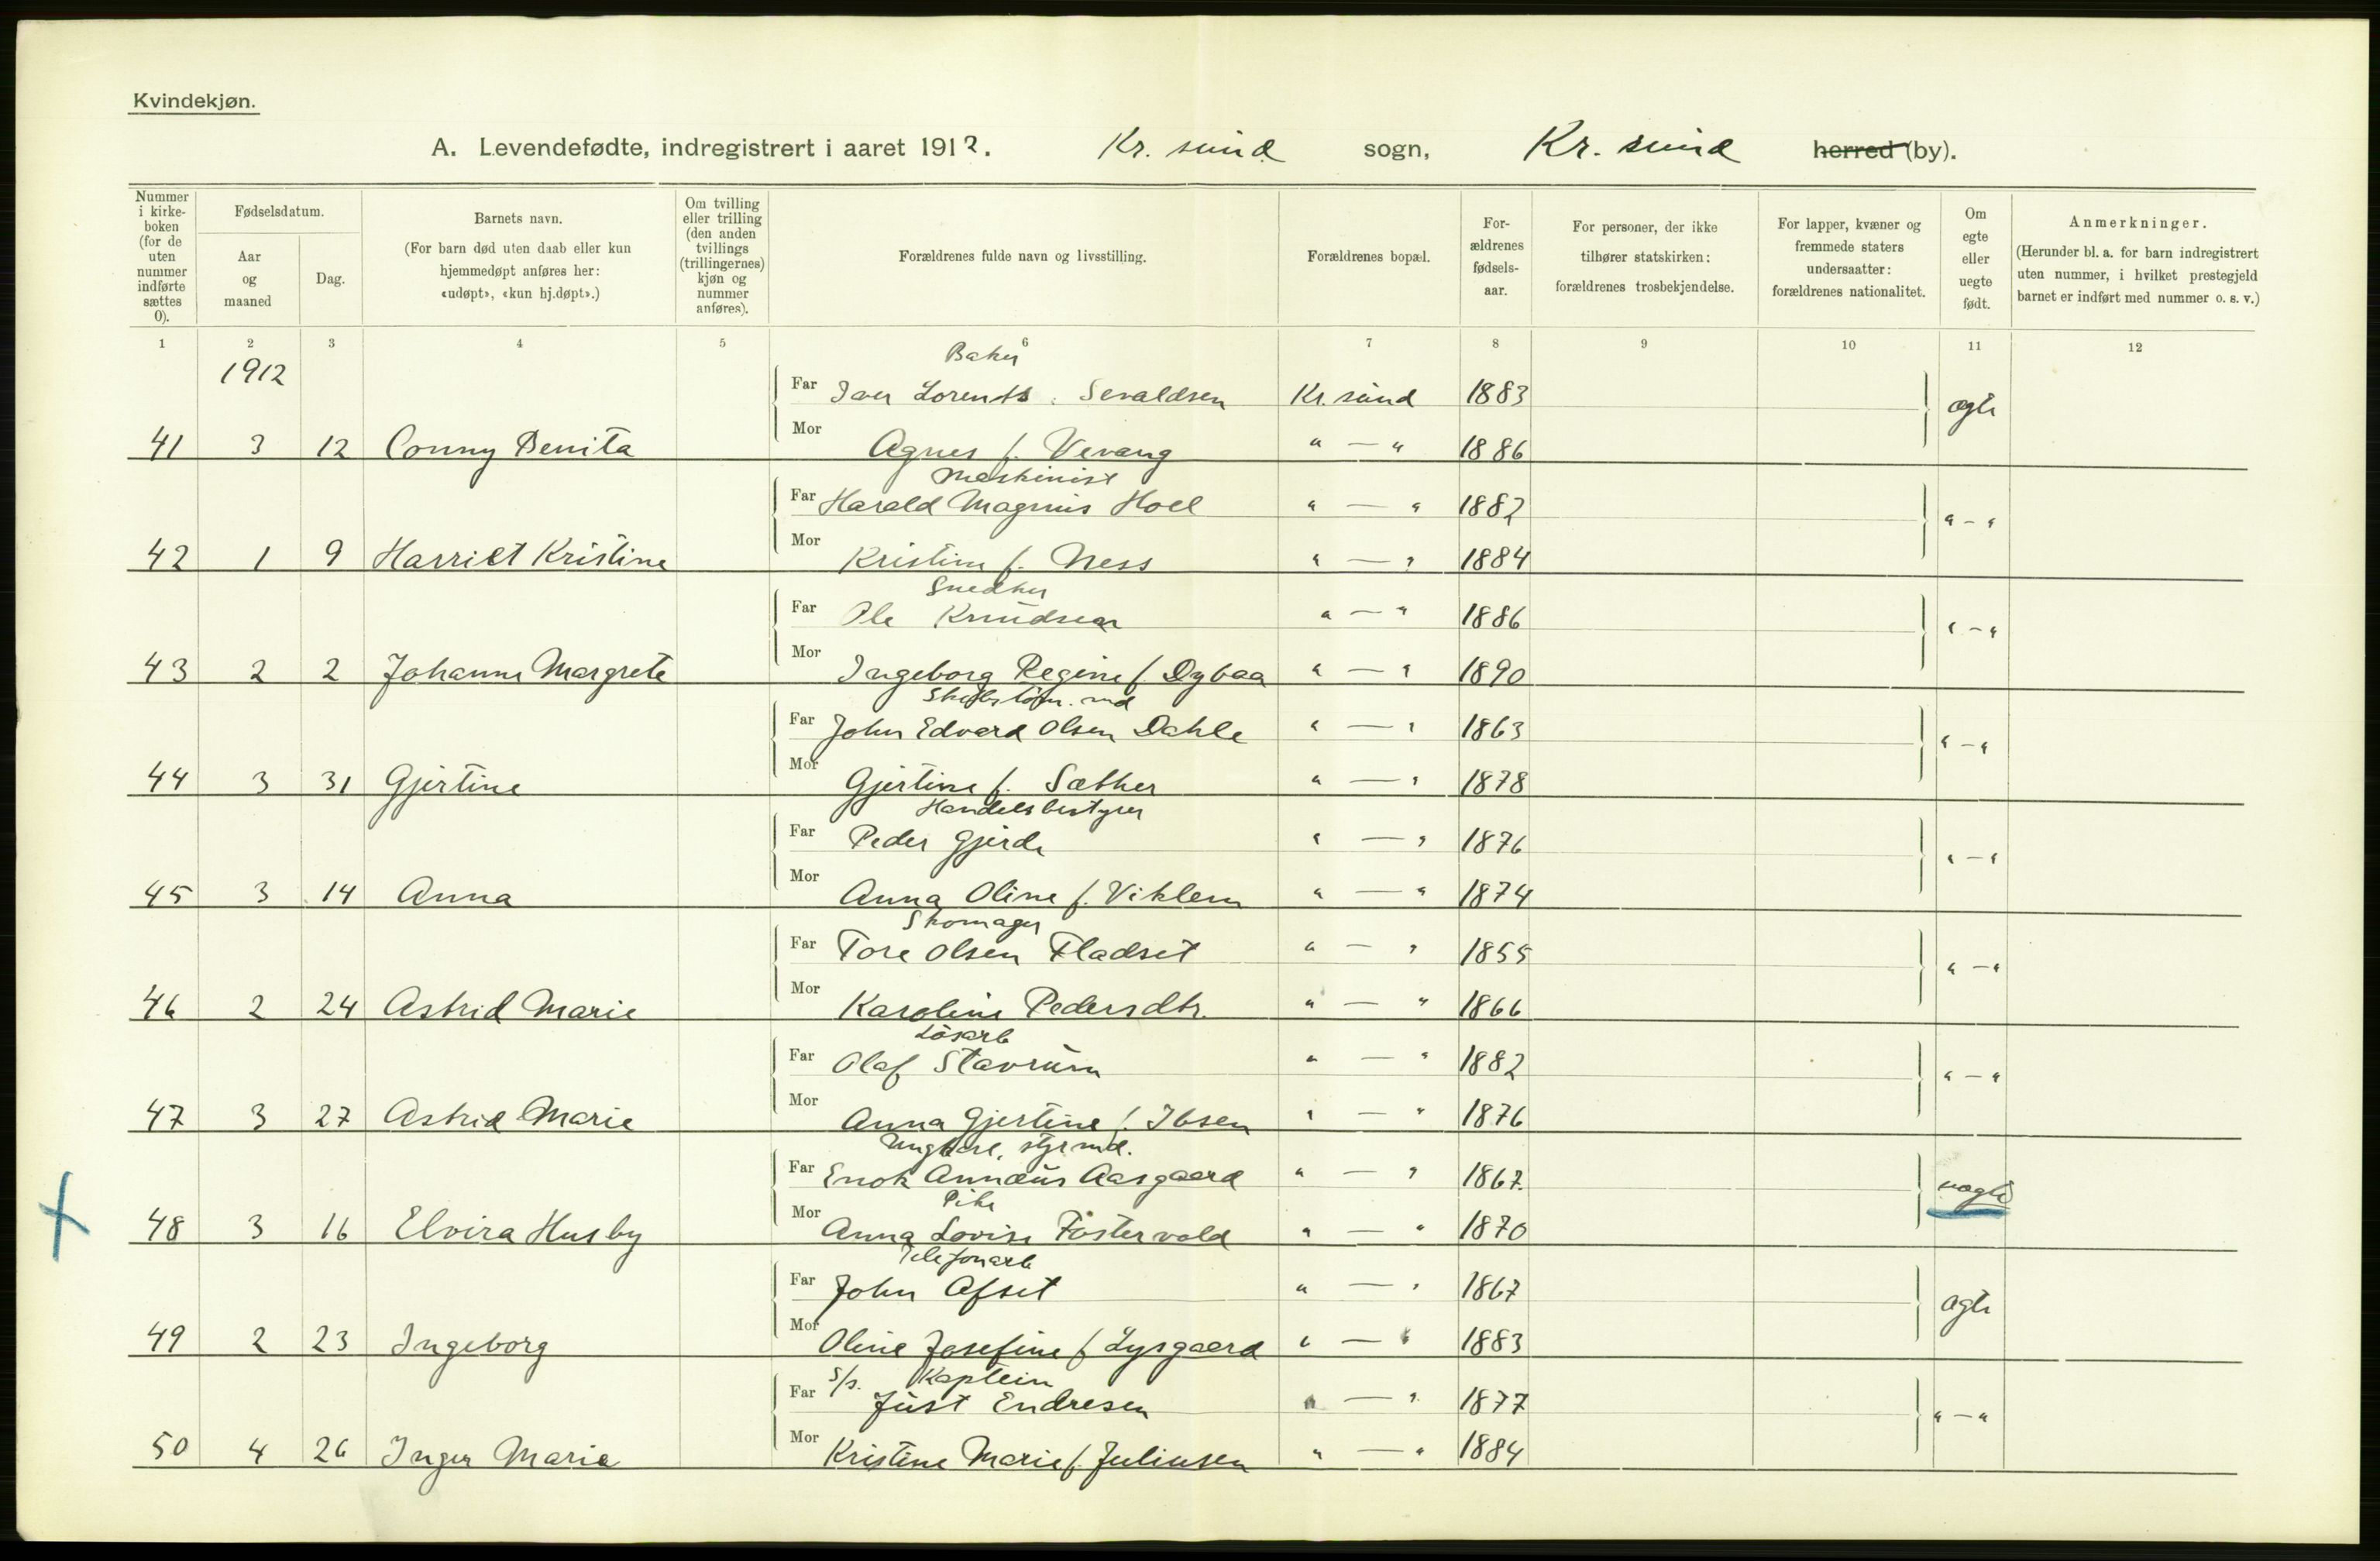 Kvindekjøn.
A. Levendefødte, indregistrert i aaret 1912. Kr. sund sogn, Kr. sund herred (by).
Nummer i kirkeboken (for de uten nummer indførte sættes 0). Fødselsdatum. Aar og maaned Dag. Barnets navn. (For barn død uten daab eller kun hjemmedøpt anføres her: «udøpt», «kun hj.døpt».) Om tvilling eller trilling (den anden tvillings (trillingernes) kjøn og nummer anføres). Forældrenes fulde navn og livsstilling. Forældrenes bopæl. Forældrenes fødselsaar. For personer, der ikke tilhører statskirken: forældrenes trosbekjendelse. For lapper, kvæner og fremmede staters undersaatter: forældrenes nationalitet. Om egte eller uegte født. Anmerkninger. (Herunder bl. a. for barn indregistrert uten nummer, i hvilket prestegjeld barnet er indført med nummer o. s. v.)
1 2 3 4 5 6 7 8 9 10 11 12
1912
Baker
Far Iver Lorents Sevaldsen Kr. sund 1883 ægte
41 3 12 Conny Benita Mor Agnes f. Vevang " — " 1886
Maskinist
Far Harald Magnus Hoel " — " 1882 " — "
42 1 9 Harriet Kristine Mor Kristine f. Ness " — " 1884
Snedker
Far Ole Knudsen " — " 1886 " — "
43 2 2 Johanne Margrete Mor Ingeborg Regine f Dybaa " — " 1890
Far John Edvard Olsen Dahle " — " 1863 " — "
44 3 31 Gjertine Mor Gjertine f. Sæther " — " 1878
Handelsbestyrer
Far Peder Gjerde " — " 1876 " — "
45 3 14 Anna Mor Anna Oline f. Viklem " — " 1874
Skomager
Far Tore Olsen Fladset " — " 1855 " — "
46 2 24 Astrid Marie Mor Karoline Pedersdtr. " — " 1866
Løsarb
Far Olaf Stavrum " — " 1882 " — "
47 3 27 Astrid Marie Mor Anna Gjertine f. Ibsen " — " 1876
Ungkarl, styrmd.
Far Enok Annæus Aasgaard " — " 1867. uægte
Pike
48 3 16 Elvira Husby Mor Anna Lovise Fostervold " — " 1870
Telefonarb
Far John Afset " — " 1867 ægte
49 2 23 Ingeborg Mor Oline Josefine f Lysgaard " — " 1883
S/s. Kaptein
Far Just Endresen " — " 1877 " — "
50 4 26 Inger Marie Mor Kristine Marie f. Juliusen " — " 1884